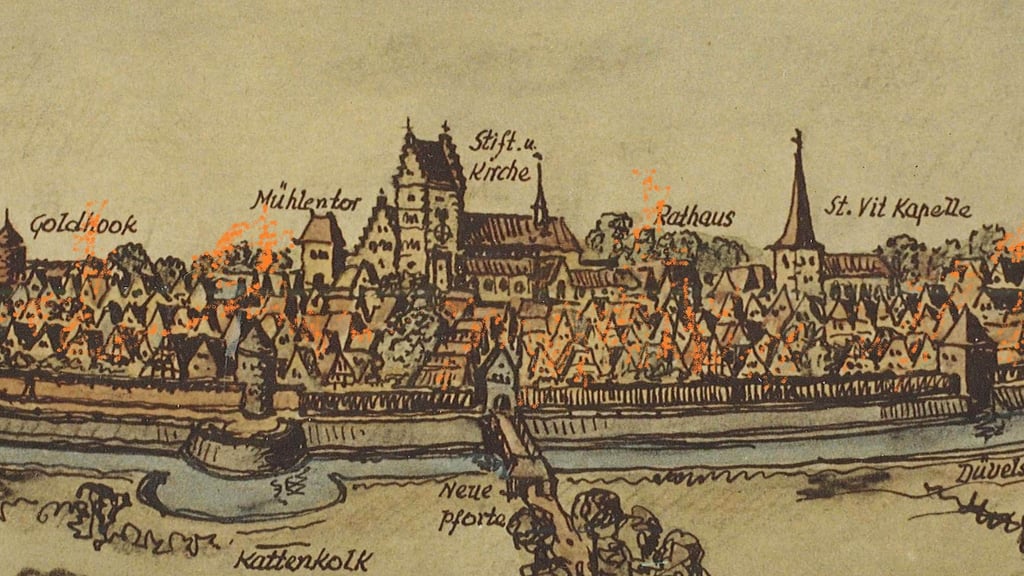 Stift. u.
Kirche
Goldhook
Mühlentor
Rathaus
St. Vit Kapelle
Neue
Pforte
Kattenkolk